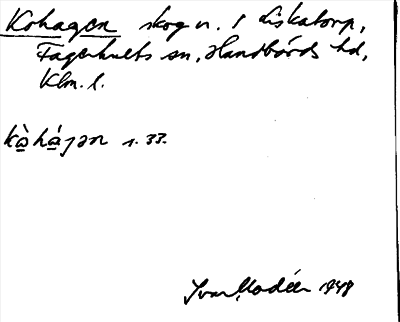 Kohagen skog u. 1 Liskatorp,
Fagerhults sn, Handbörds hd,
Klm. l.
kòhágan s. 33.
Ivar Modéer 1948